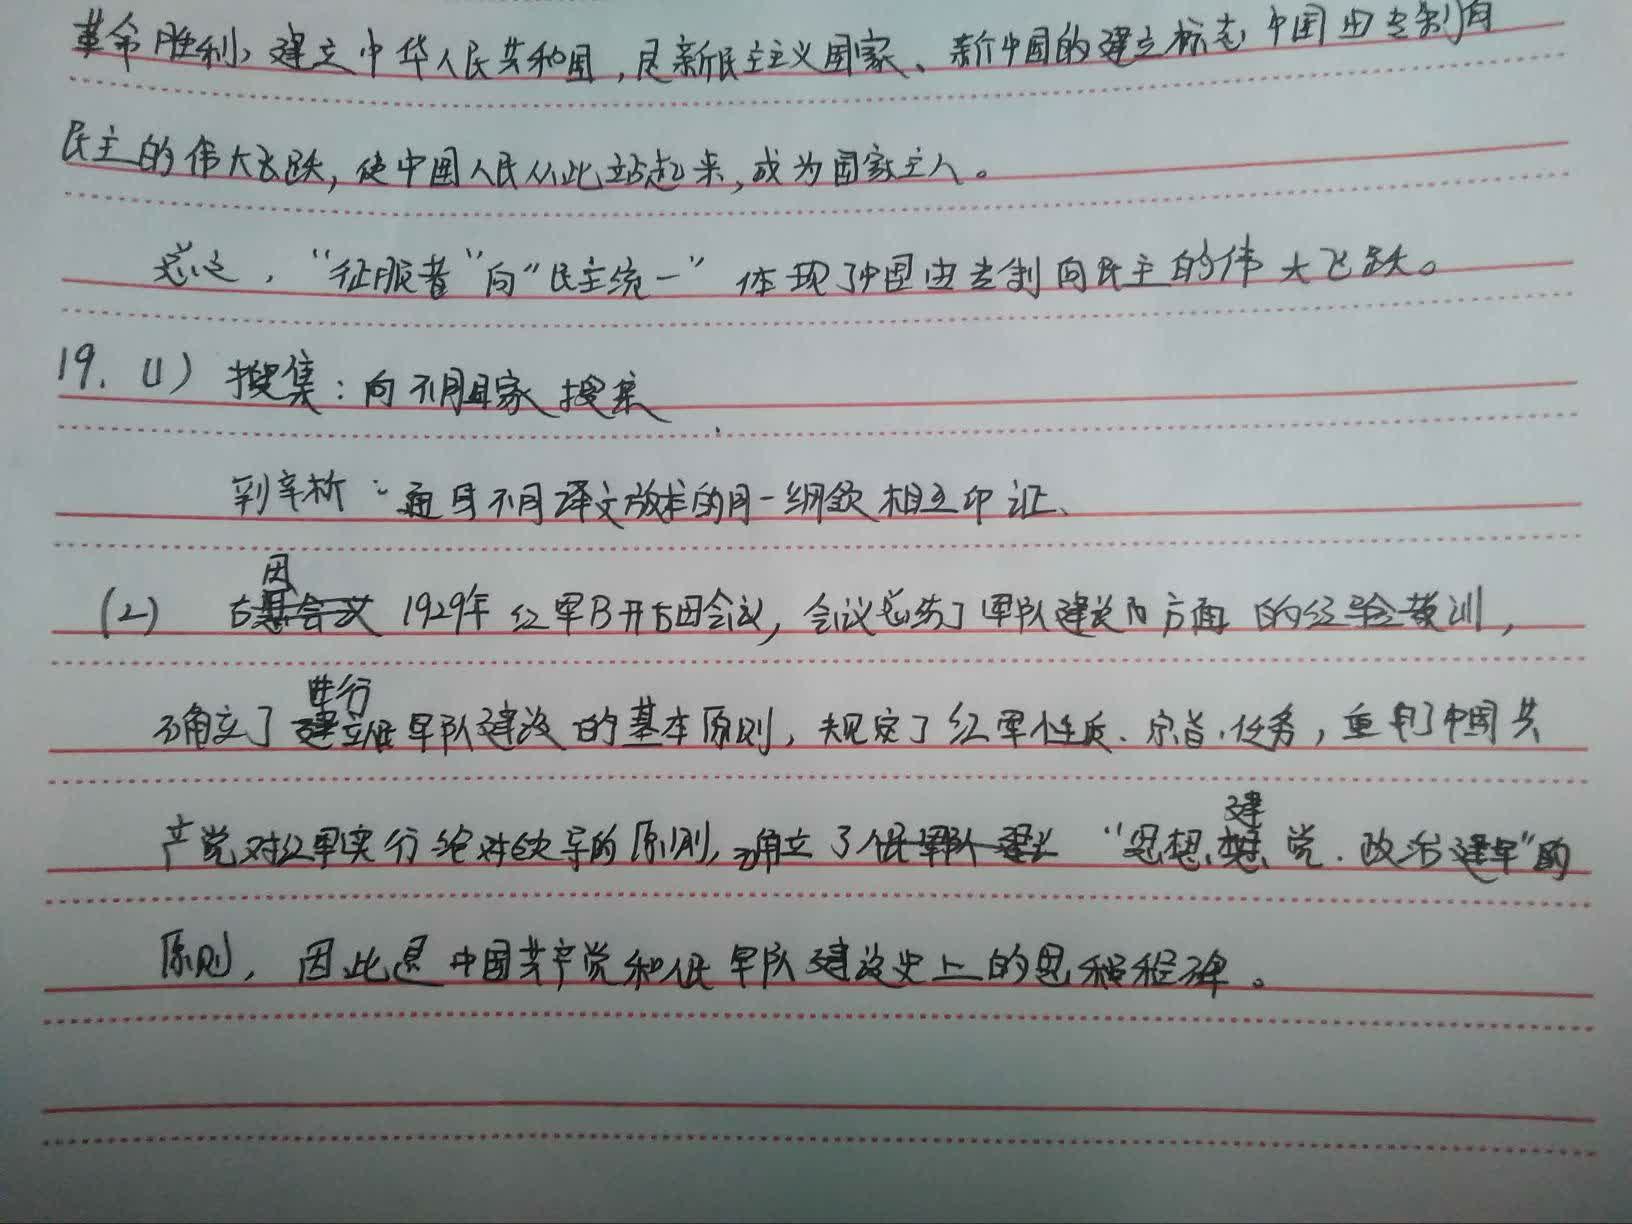 革命胜利，建立中华人民共和国，是新民主主义国家、新中国的建立标志中国由专制向
民主的伟大飞跃，使中国人民从此站起来，成为国家主人。
总之，“征服者”向“民主统一”体现了中国由专制向民主的伟大飞跃。
19. (1) 搜集：向不同国家搜集
辛析：通过不同译文版本的同一细致相互印证、
(2) 古田 1929年红军召开古田会议，会议总结了军队建设方面的经验教训，
确立了进行军队建设的基本原则，规定了红军性质、宗旨、任务，重申了中国共
产党对红军实行绝对领导的原则，确立了 “思想建党、政治建军”的
原则，因此是中国共产党和人民军队建设史上的里程碑。